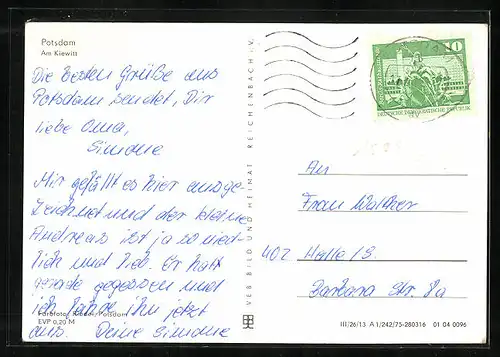 Potsdam
Am Kiewitt
Die besten Grüße aus
Potsdam sendet, Dir
liebe Oma,
Simone
Mir gefällt es hier ausge
zeichnet und der kleine
Andreas ist ja so nied-
lich und lieb. Er hat
gerade gegessen und
ich fahre ihn jetzt
aus. Deine Simone
Potsdam
EVP 0,20 M
VEB BILD UND HEIMAT REICHENBACH I. V.
10
DEUTSCHE DEMOKRATISCHE REPUBLIK
An
Frau Walther
402 Halle/S.
Barbara Str. 2a
III/26/13 A 1/242/75-280316 01 04 0096